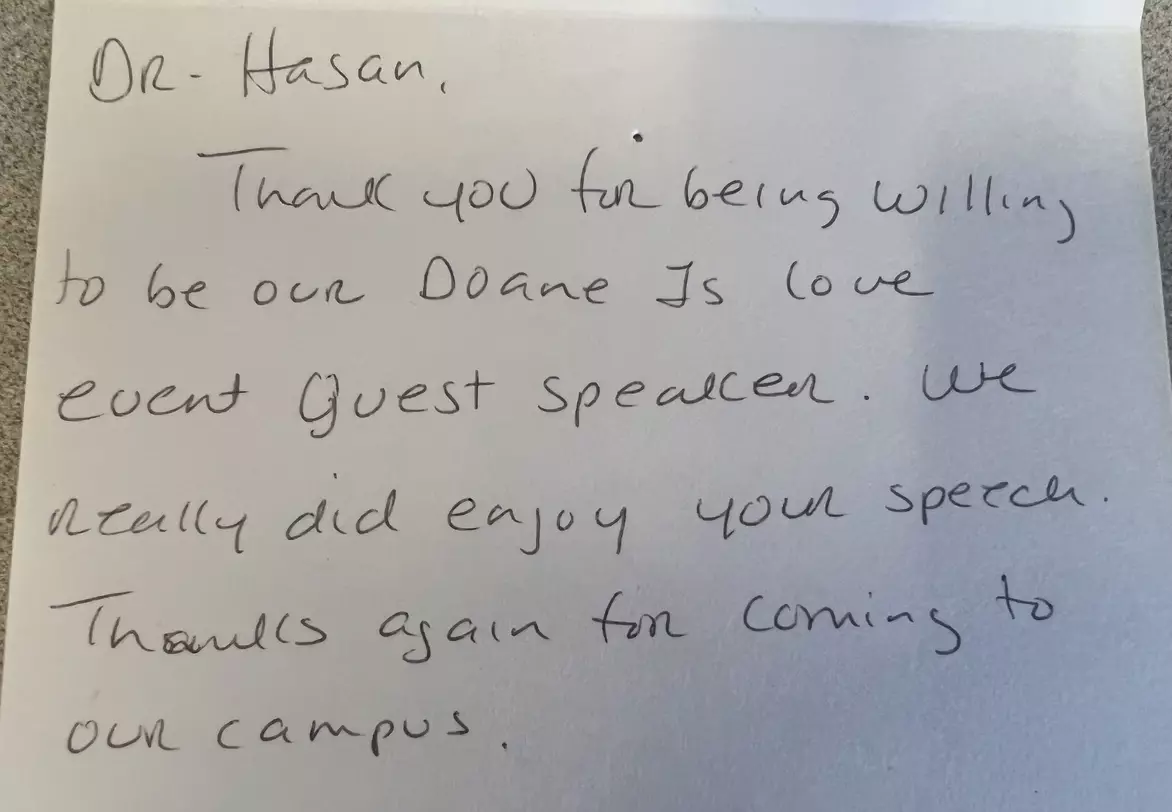 DR- Hasan,
Thank you for being willing
to be our Doane Is love
event Guest speaker. We
really did enjoy your speech.
Thanks again for coming to
our campus.